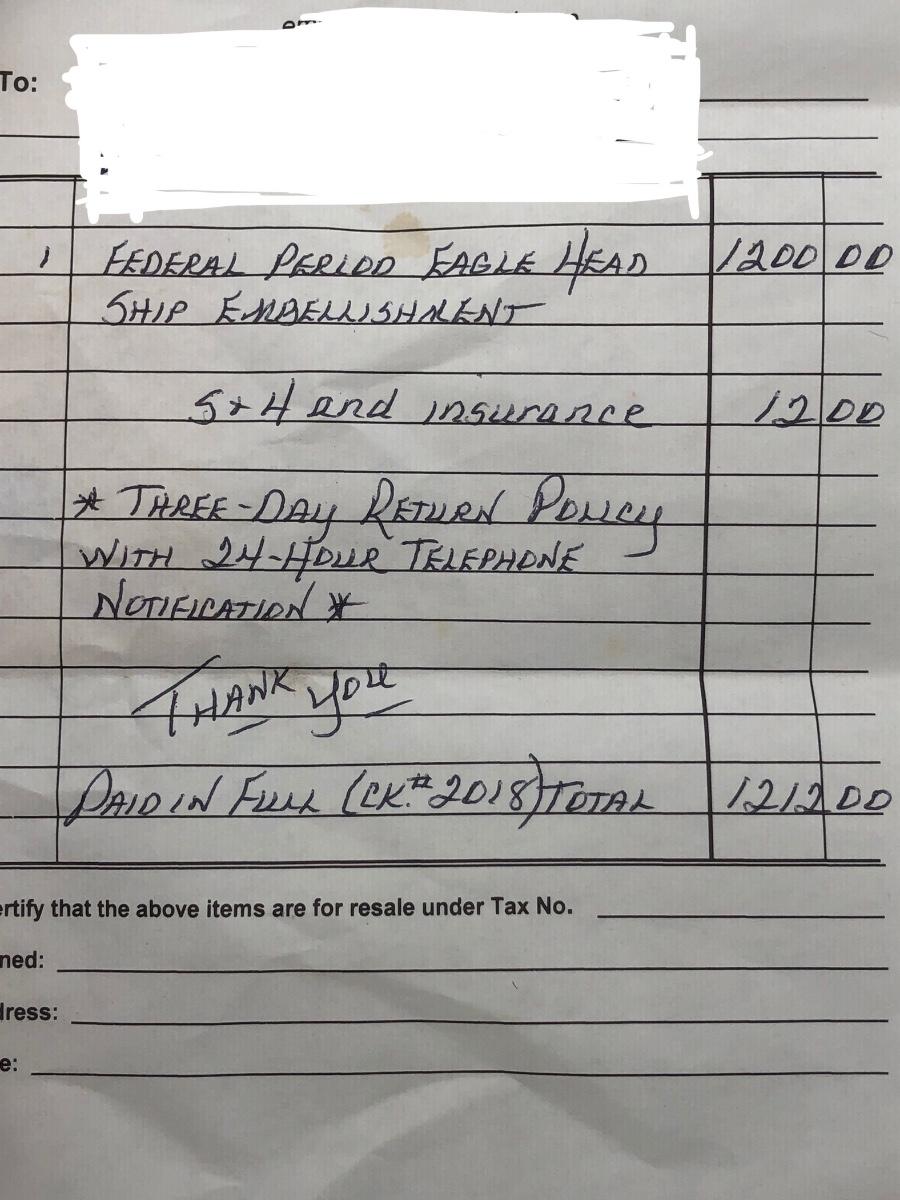 To:
1 FEDERAL PERIOD EAGLE HEAD 1200 00
SHIP EMBELLISHMENT
S+H and insurance 12 00
* THREE-DAY RETURN POLICY
WITH 24-HOUR TELEPHONE
NOTIFICATION *
THANK YOU
PAID IN FULL (CK.# 2018) TOTAL 1212 00
ertify that the above items are for resale under Tax No.
ned:
dress:
e: